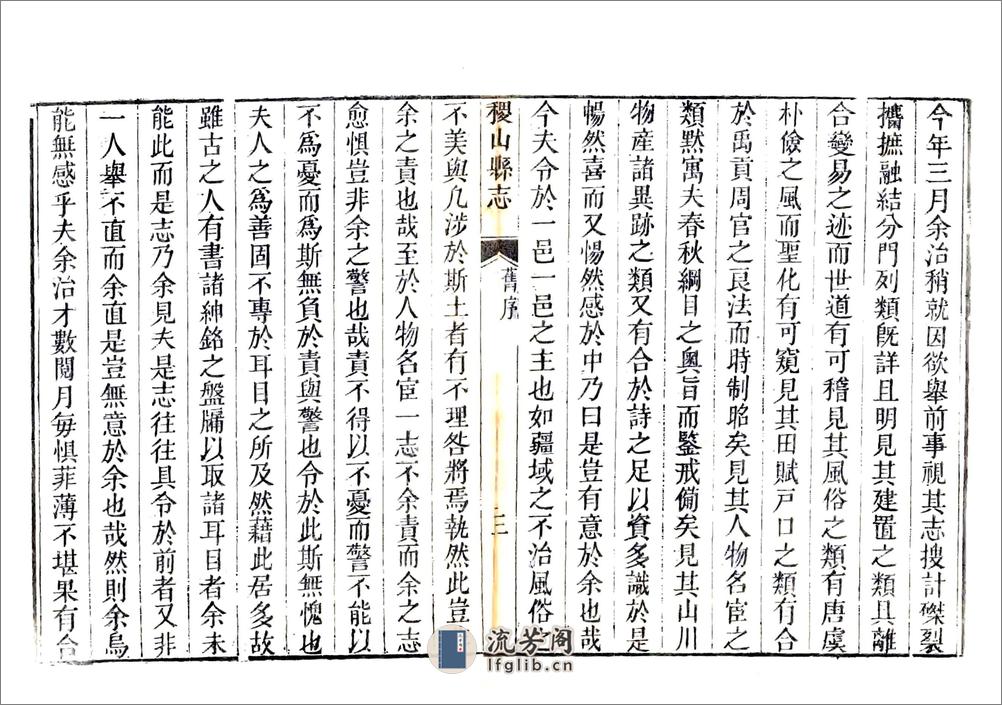 今年三月余治稍就因欲舉前事視其志搜計磔裂
攟摭融結分門列類旣詳且明見其建置之類具離
合變易之迹而世道有可稽見其風俗之類有唐虞
朴儉之風而聖化有可窺見其田賦戸口之類有合
於禹貢周官之良法而時制昭矣見其人物名宦之
類黙寓夫春秋綱目之奧旨而鑒戒備矣見其山川
物產諸異跡之類又有合於詩之足以資多識於是
暢然喜而又惕然感於中乃曰是豈有意於余也哉
今夫令於一邑一邑之主也如疆域之不治風俗之
稷山縣志
舊序
三
不美與凡涉於斯土者有不理咎將焉執然此豈
余之責也哉至於人物名宦一志不余責而余之志
愈惧豈非余之警也哉責不得以不憂而警不能以
不爲憂而爲斯無負於責與警也令於此斯無愧也
夫人之爲善固不專於耳目之所及然藉此居多故
雖古之人有書諸紳銘之盤牖以取諸耳目者余未
能此而是志乃余見夫是志往往具令於前者又非
一人舉不直而余直是豈無意於余也哉然則余烏
能無感乎夫余治才數閱月每惧菲薄不堪果有合
流芳阁
lfglib.cn